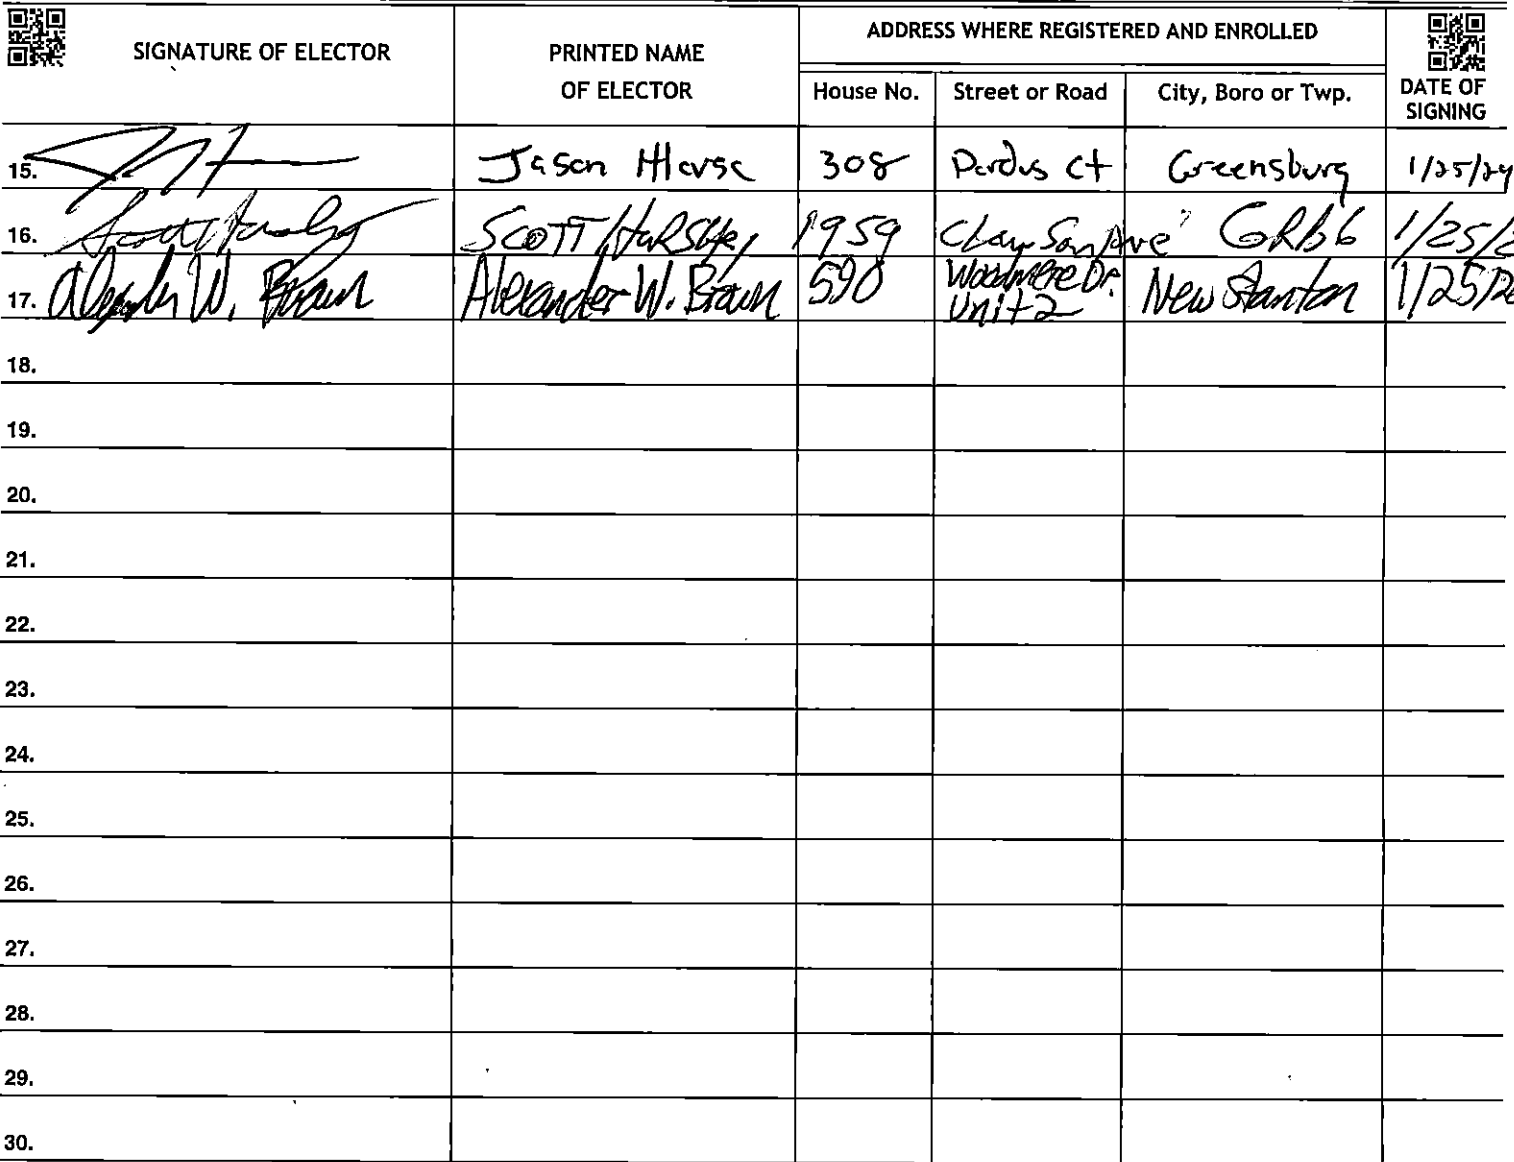 SIGNATURE OF ELECTOR
PRINTED NAME
OF ELECTOR
ADDRESS WHERE REGISTERED AND ENROLLED
House No. Street or Road City, Boro or Twp.
DATE OF
SIGNING
15. Jason 308 Ct Greensburg 1/25/24
16. SCOTT 1959 Ave 1/25/2
17. Alexander W. Brown Alexander W. Brown 590 Woodmere Dr. New Stanton 1/25/2
Unit 2
18.
19.
20.
21.
22.
23.
24.
25.
26.
27.
28.
29.
30.